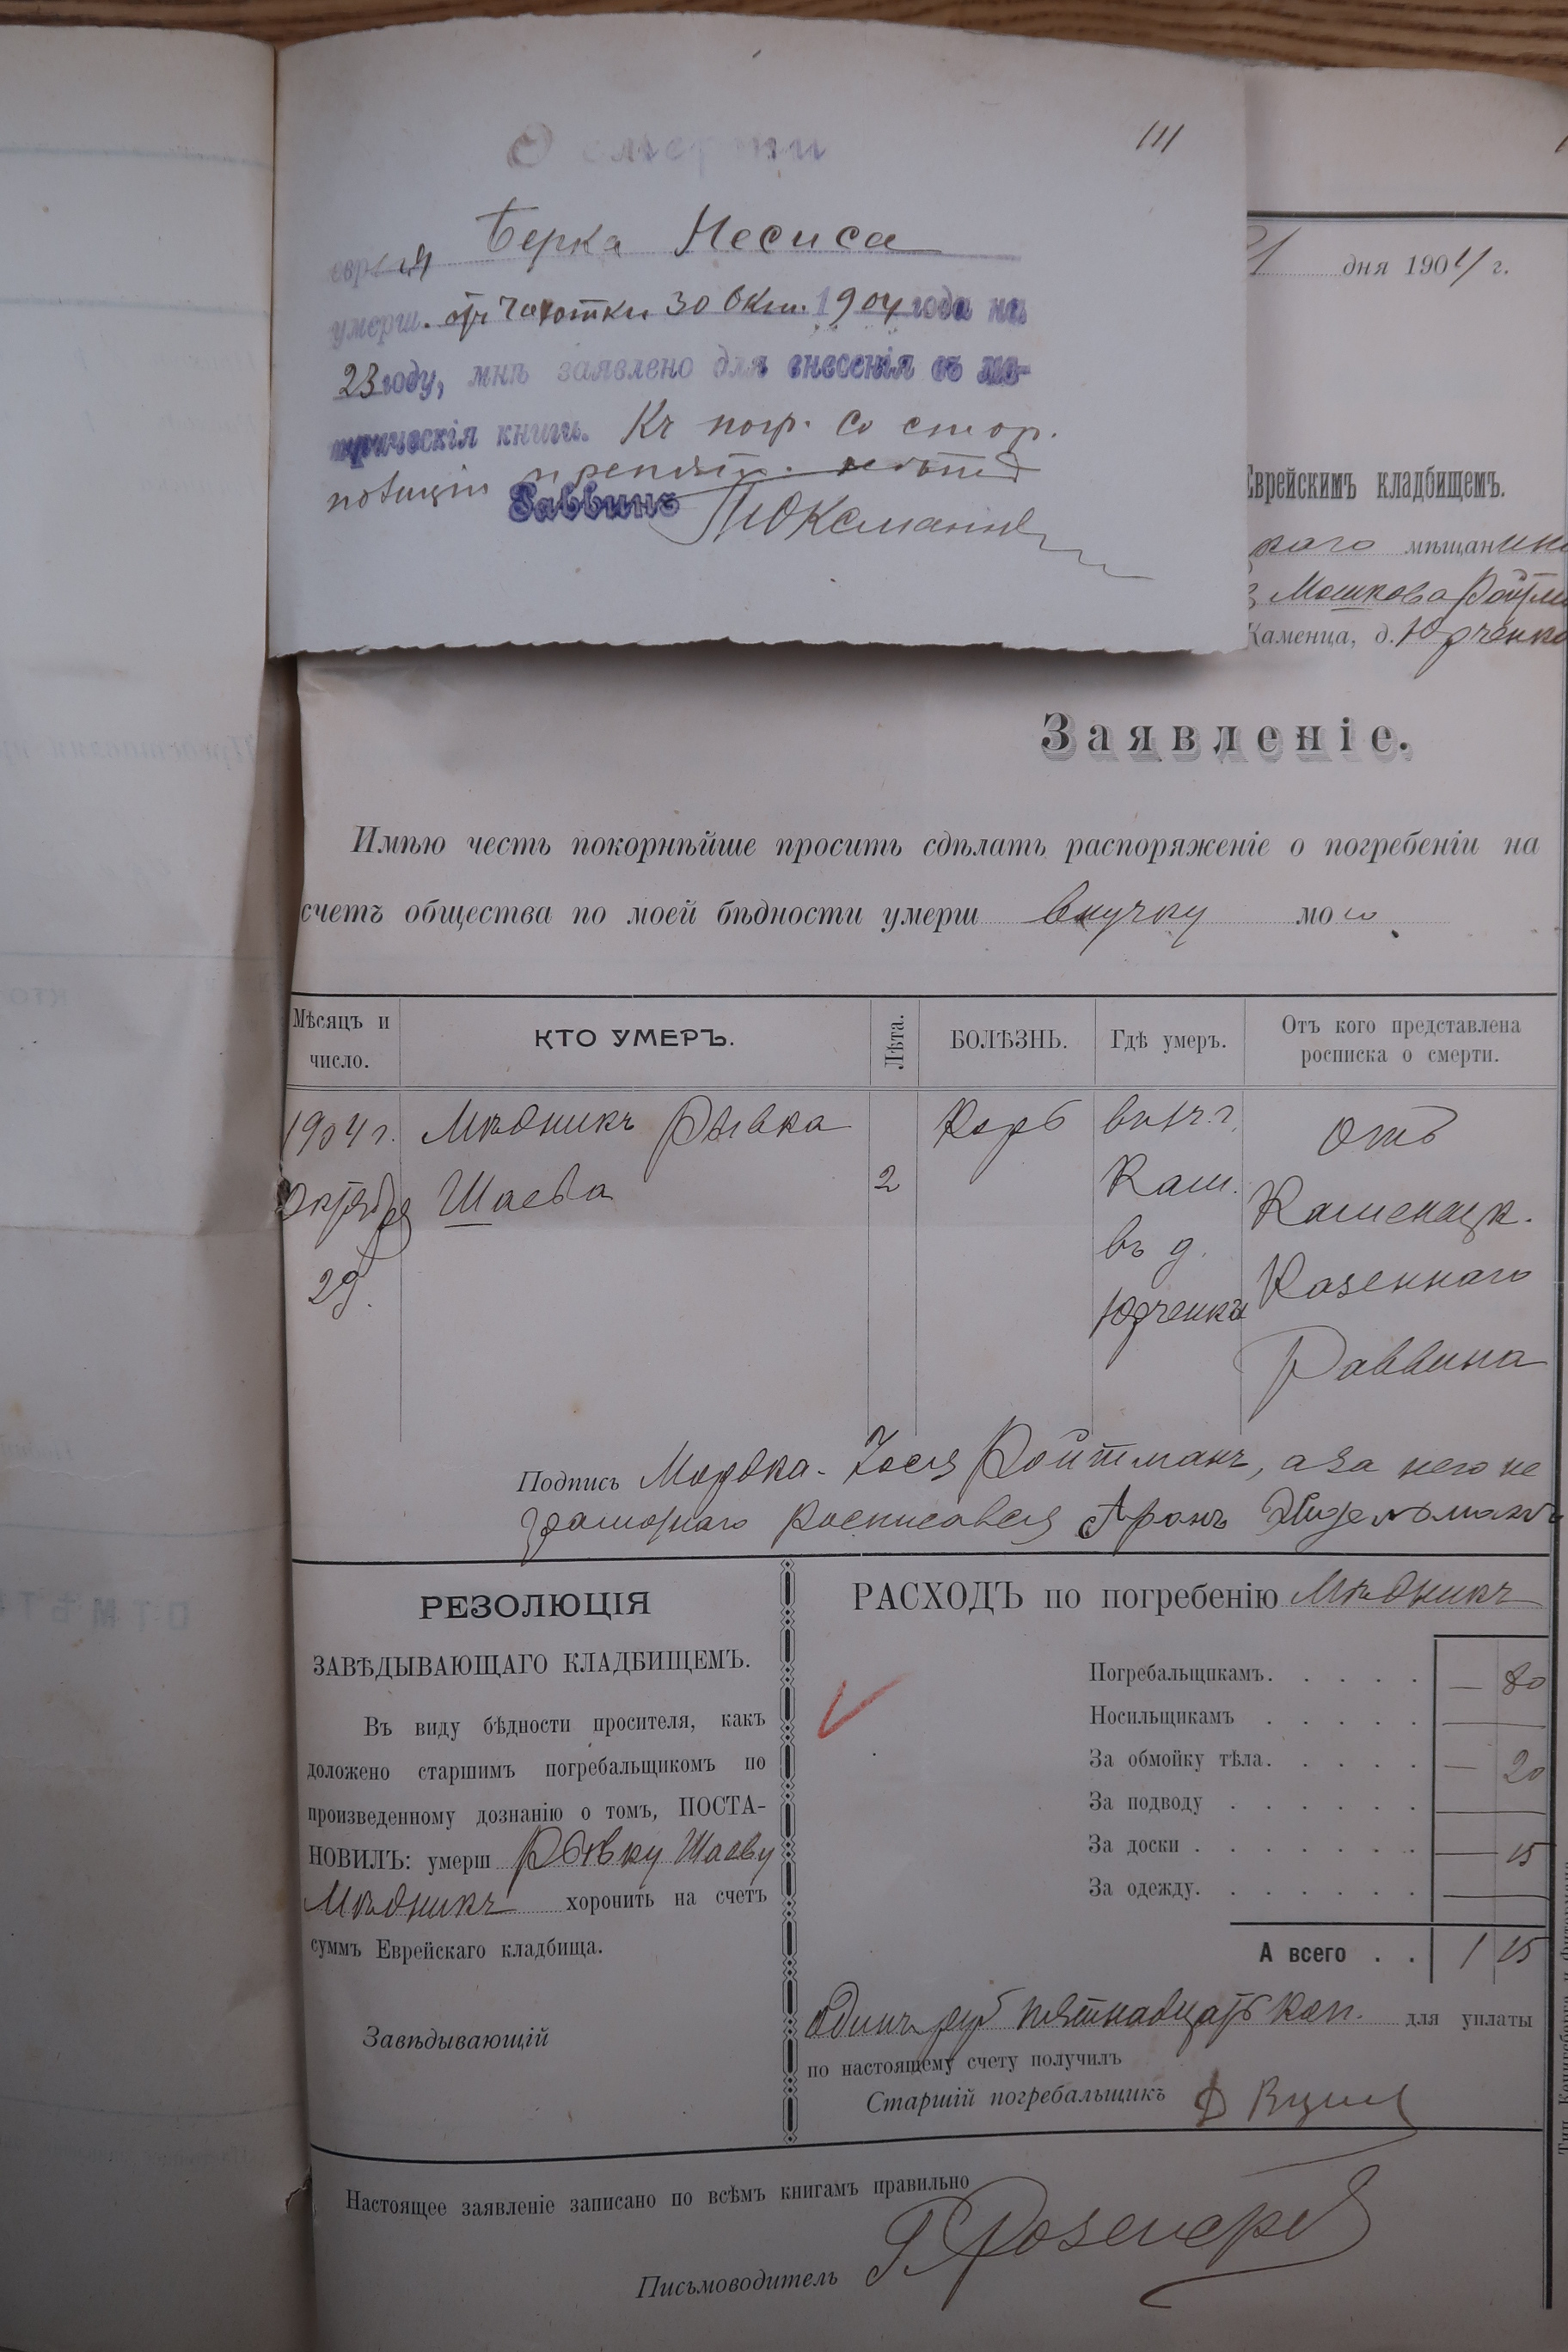 О смерти
111
еврея Берка Несиса
умерш. от чахотки 30 Окт. 1904 года на
23 году, мнѣ заявлено для внесенія въ ме-
трическія книги. Къ погр. со стор.
полиціи препят.
Раввинъ
дня 1904 г.
Еврейскимъ кладбищемъ.
мѣщанин
Мошкова Ройтм
Каменца, д. Юрченко
Заявленіе.
Имѣю честь покорнѣйше просить сдѣлать распоряженіе о погребеніи на
счетъ общества по моей бѣдности умерш внучку мою
Мѣсяцъ и число. КТО УМЕРЪ. Лѣта. БОЛѢЗНЬ. Гдѣ умеръ. Отъ кого представлена росписка о смерти.
1904 г. Мѣдникъ Рывка Корь Отъ
Октября Шаева 2 Кам. Каменецк.
29 въ д. Казеннаго
Юрченка Раввина
Подпись Мордка-Іося Ройтманъ, а за него не
грамотнаго росписался Аронъ
РЕЗОЛЮЦІЯ
ЗАВѢДЫВАЮЩАГО КЛАДБИЩЕМЪ.
Въ виду бѣдности просителя, какъ
доложено старшимъ погребальщикомъ по
произведенному дознанію о томъ, ПОСТА-
НОВИЛЪ: умерш Рывку Шаеву
Мѣдникъ хоронить на счетъ
суммъ Еврейскаго кладбища.
Завѣдывающій
РАСХОДЪ по погребенію Мѣдникъ
Погребальщикамъ. . . . . — 80
Носильщикамъ . . . . . —
За обмойку тѣла. . . . . — 20
За подводу . . . . . . —
За доски . . . . . . . — 15
За одежду. . . . . . . —
А всего . . 1 15
Одинъ руб пятнадцать коп. для уплаты
по настоящему счету получилъ
Старшій погребальщикъ
Настоящее заявленіе записано по всѣмъ книгамъ правильно
Письмоводитель